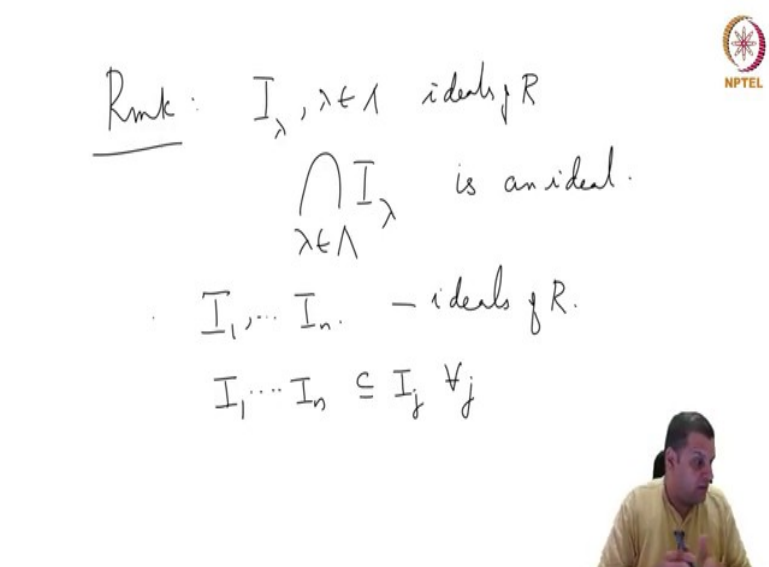 NPTEL
Rmk: I_λ, λ∈Λ ideals of R
⋂_{λ∈Λ} I_λ is an ideal.
I_1, ... I_n. — ideals of R.
I_1 ···· I_n ⊆ I_j ∀j